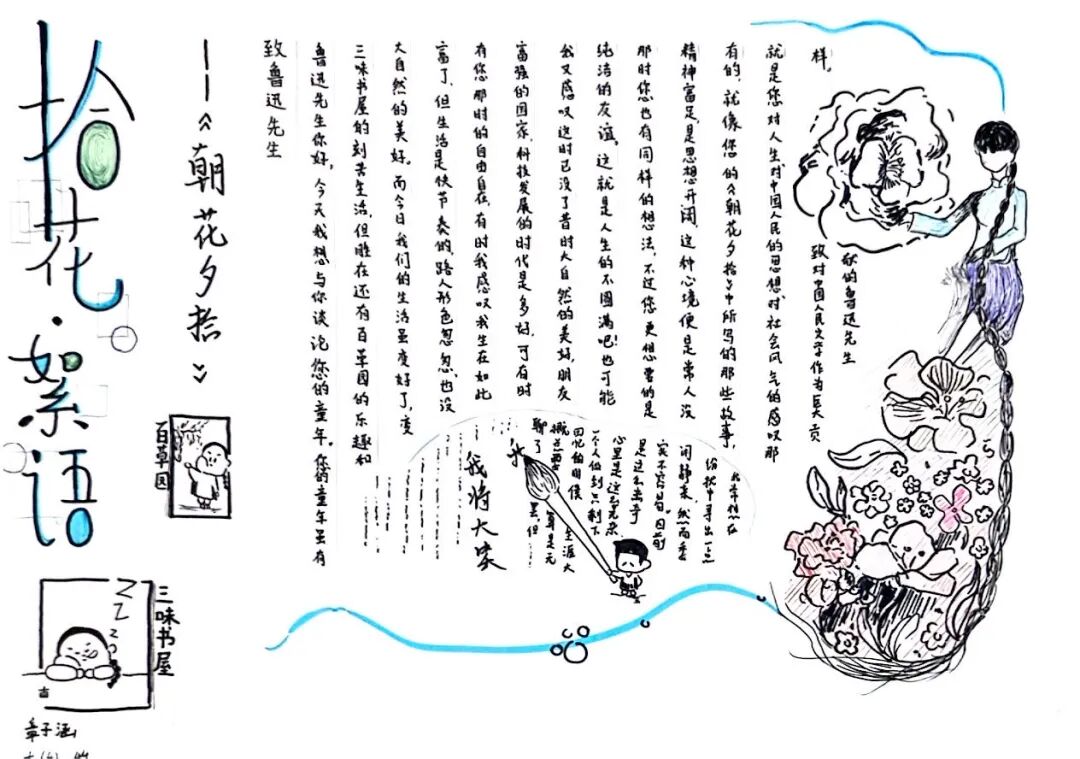 拾花·絮语
——《朝花夕拾》
百草园
三味书屋
章子涵
致鲁迅先生
鲁迅先生你好。今天我想与你谈论您的童年。您的童年虽有
三味书屋的刻苦生活,但胜在还有百草园的乐趣和
大自然的美好。而今日我们的生活虽变好了,变
富了,但生活是快节奏的,路人形色忽忽,也没
有您那时的自由自在,有时我感叹我生在如此
富强的国家,科技发展的时代是多好,可有时
我又感叹这时已没了昔时大自然的美好,朋友
纯洁的友谊。这就是人生的不圆满吧!也可能
那时您也有同样的想法,不过您更想要的是
精神富足,是思想开阔,这种心境便是常人没
有的,就像您的《朝花夕拾》中所写的那些故事,
就是您对人生对中国人民的思想对社会风气的感叹那
样。
致对中国人民文学作为巨大贡
献的鲁迅先生
我常想在
纷扰中寻出一点
闲静来,然而委
实不容易。目前
是这么离奇
心里是这么芜杂
一个人做到只剩下
回忆的时候 生涯大
概总要 算是无
聊了 罢,但
我将大笑